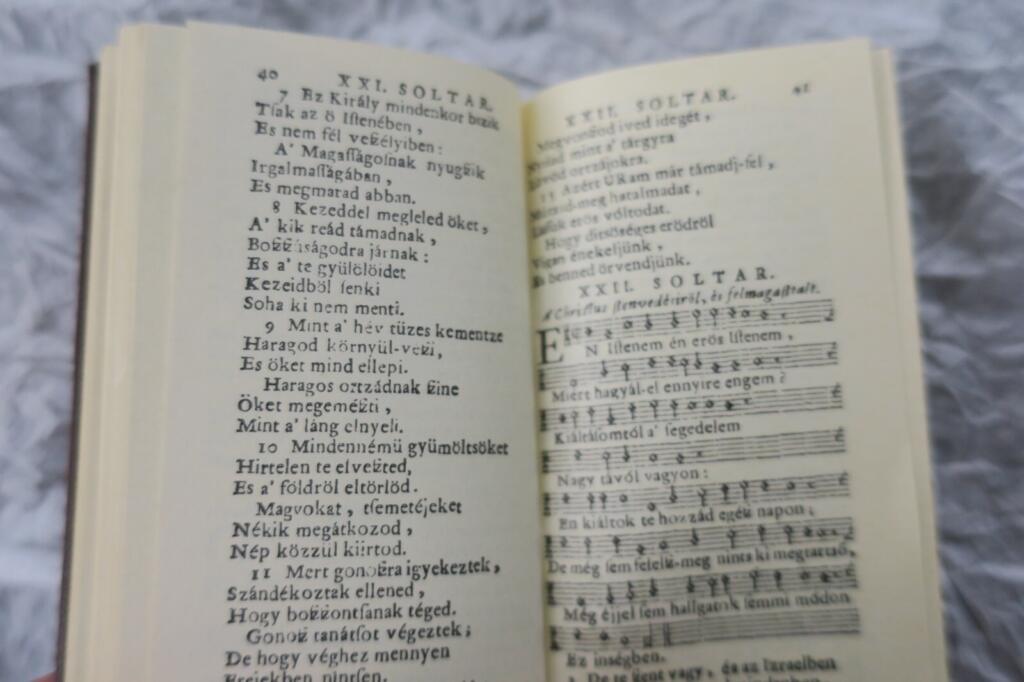 40 XXI. SOLTAR.
7 Ez Király mindenkor bizik
Tſak az ö Iſtenében,
Es nem fél veßélyiben:
A' Magaſſágoſnak nyugßik
Irgalmaſſágában,
Es megmarad abban.
8 Kezeddel megleled öket,
A' kik reád támadnak,
Boßßuságodra járnak:
Es a' te gyülölöidet
Kezeidböl ſenki
Soha ki nem menti.
9 Mint a' hév tüzes kementze
Haragod környül-veßi,
Es öket mind ellepi.
Haragos ortzádnak ßine
Öket megeméßti,
Mint a' láng elnyeli.
10 Mindennémü gyümöltsöket
Hirtelen te elveßted,
Es a' földröl eltörlöd.
Magvokat, tſemetéjeket
Nékik megátkozod,
Nép közzül kiirtod.
11 Mert gonoßra igyekeztek,
Szándékoztak ellened,
Hogy boßßontſanak téged.
Gonoß tanátſot végeztek;
De hogy véghez mennyen
Erejekben nintſen.
XXII. SOLTAR. 41
ived idegét,
mint a' tárgyra
ortzájokra.
Azért URam már támadj-fel,
hatalmadat,
erös vóltodat.
Hogy ditsöséges erödröl
Vigan énekeljünk,
Es benned örvendjünk.
XXII. SOLTAR.
A' Chriſtus ſzenvedéſiröl, és felmagaſztalt.
EN Iſtenem én erös Iſtenem,
Miért hagyál-el ennyire engem?
Kiáltáſomtól a' ſegedelem
Nagy távól vagyon:
En kiáltok te hozzád egéß napon;
De még ſem felelß-meg nints ki megtartsó,
Még éjjel ſem hallgatok ſemmi módon
Ez inségben.
és az Izraelben